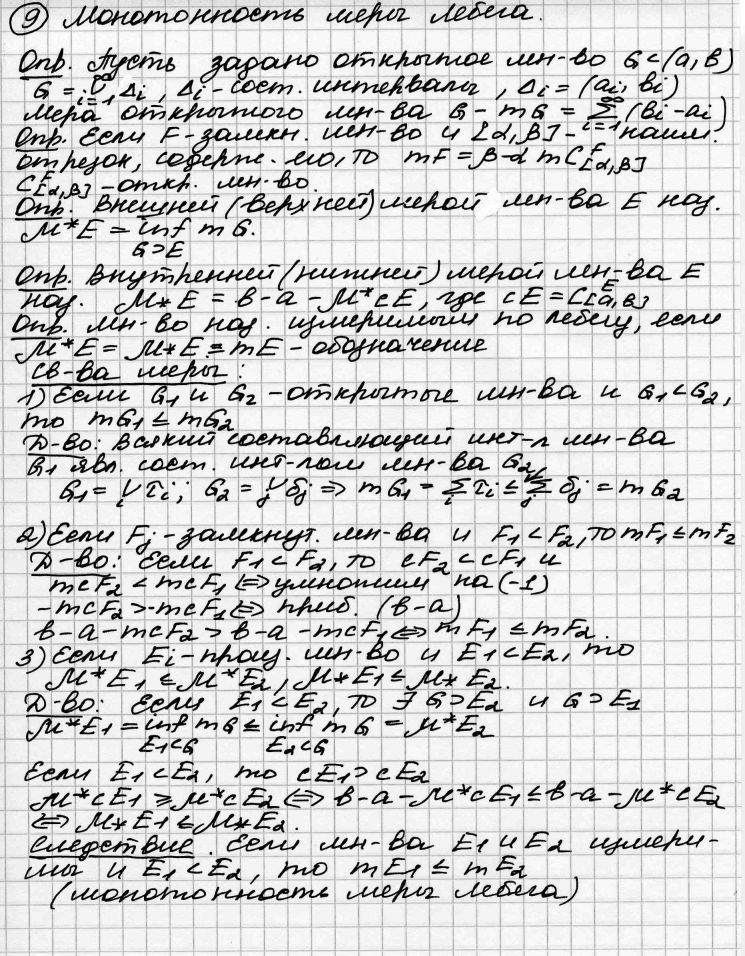 ⑨ Монотонность меры Лебега.
Опр. Пусть задано открытое мн-во G⊂(a,b)
G = ∞∪i=1 Δi, Δi-сост. интервалы, Δi = (ai, bi)
Мера открытого мн-ва G - mG = ∞Σi=1 (bi-ai)
Опр. Если F-замкн. мн-во и [α,β] - наим.
отрезок, содерж. его, то mF = β-α mC[α,β]F
C[α,β]F - откр. мн-во.
Опр. Внешней (верхней) мерой мн-ва E наз.
M*E = inf mG.
G⊃E
Опр. Внутренней (нижней) мерой мн-ва E
наз. M*E = b-a-M*cE, где cE = C[a,b]E
Опр. Мн-во наз. измеримым по Лебегу, если
M*E = M*E = mE - обозначение
Св-ва меры:
1) Если G1 и G2 - открытые мн-ва и G1⊂G2,
то mG1 ≤ mG2
Д-во: Всякий составляющий инт-л мн-ва
G1 явл. сост. инт-лом мн-ва G2
G1 = ∪i τi; G2 = ∪j δj ⇒ mG1 = Σi τi ≤ Σj δj = mG2
2) Если Fj - замкнут. мн-ва и F1⊂F2, то mF1 ≤ mF2
Д-во: Если F1⊂F2, то cF2⊂cF1 и
mcF2 < mcF1 ⇔ умножим на (-1)
-mcF2 > -mcF1 ⇔ приб. (b-a)
b-a-mcF2 > b-a-mcF1 ⇔ mF1 ≤ mF2.
3) Если Ei - произ. мн-во и E1⊂E2, то
M*E1 ≤ M*E2, M*E1 ≤ M*E2.
Д-во: Если E1⊂E2, то ∃ G⊃E2 и G⊃E1
M*E1 = inf mG ≤ inf mG = M*E2
E1⊂G E2⊂G
Если E1⊂E2, то cE1⊃cE2
M*cE1 ≥ M*cE2 ⇔ b-a-M*cE1 ≤ b-a-M*cE2
⇔ M*E1 ≤ M*E2.
Следствие. Если мн-ва E1 и E2 измери-
мы и E1⊂E2, то mE1 ≤ mE2
(монотонность меры Лебега)